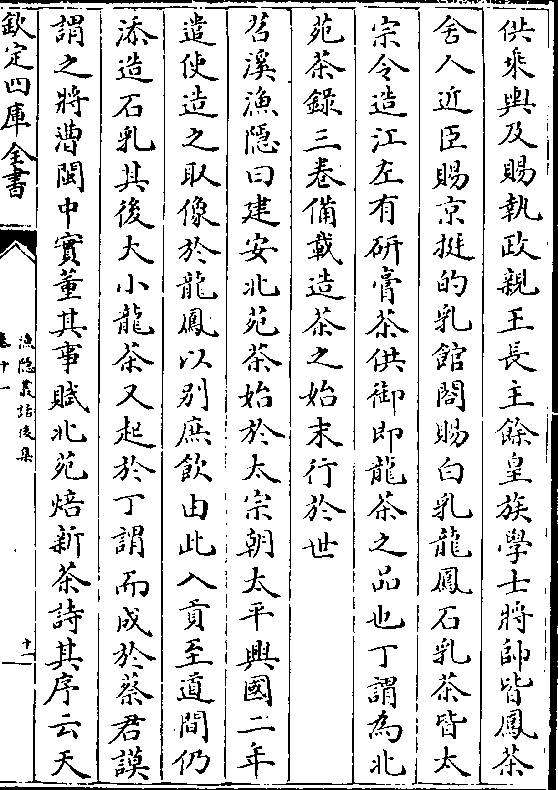 供乘輿及賜執政親王長主餘皇族學士將帥皆鳳茶
舍人近臣賜京挺的乳館閣賜白乳龍鳳石乳茶皆太
宗令造江左有研膏茶供御即龍茶之品也丁謂為北
苑茶錄三卷備載造茶之始末行於世
苕溪漁隱曰建安北苑茶始於太宗朝太平興國二年
遣使造之取像於龍鳳以别庶飲由此入貢至道間仍
添造石乳其後大小龍茶又起於丁謂而成於蔡君謨
謂之將漕閩中實董其事賦北苑焙新茶詩其序云天
欽定四庫全書
漁隱叢話後集
卷十一
十一